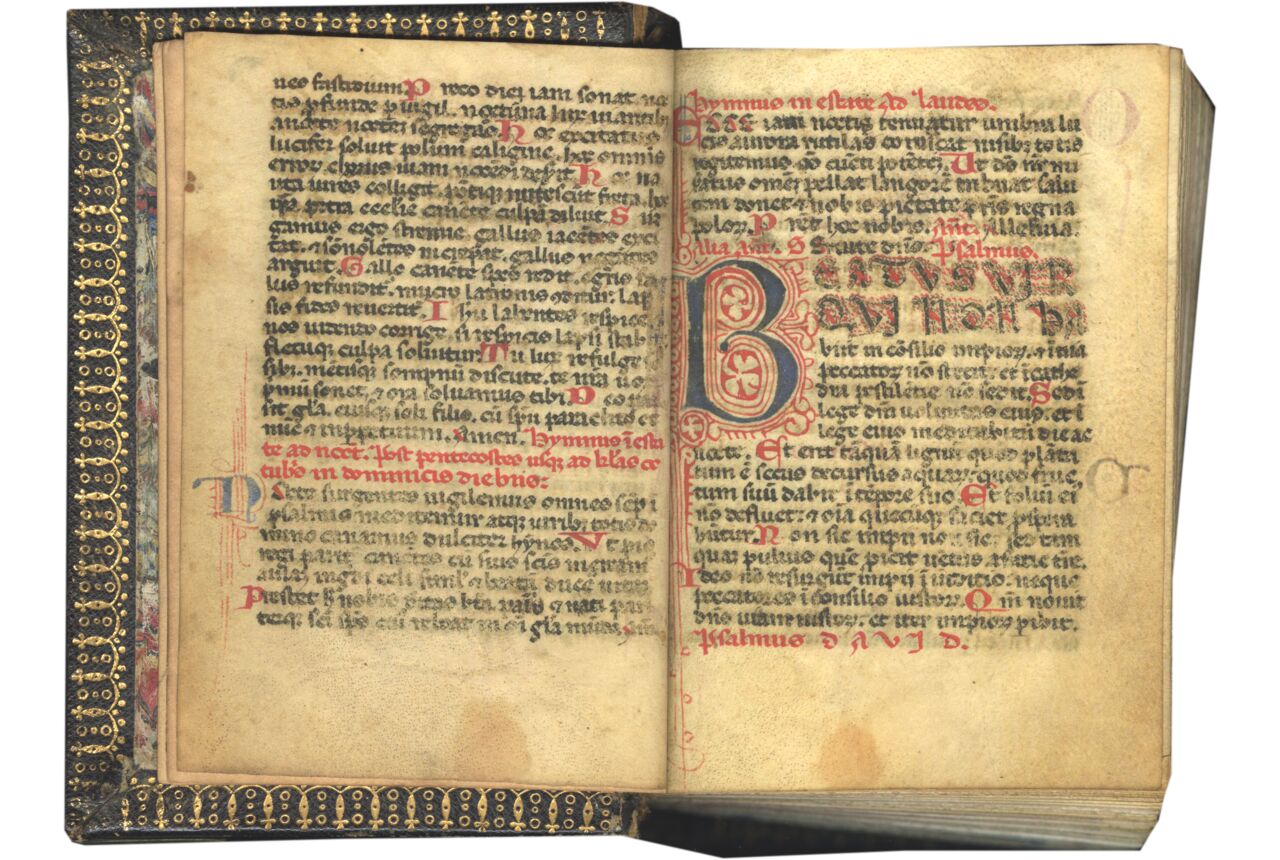 neo fastidium P reco diei iam sonat no
tis pfunde puigil. nocturna lux uiantib
a nocte noctē segregās H oc excitatus
lucifer soluit polum caligine. hoc omnis
error chorus uiam nocēdi deserit. H oc na
uta uires colligit. pōtiq mitescūt freta. hoc
ipa petra ecclie canēte culpā diluit. S ur
gamus ergo strenue. Gallus iacētes exci
tat. & sōnolētos increpat. gallus negātes
arguit. G allo canēte spes redit. egris sa
lus refundit. mucro latronis cōditur. lap
sis fides reuertit. I hu labentes respice.
nos uidendo corrige. si respicis lapsi stabūt
fletuq culpa soluitur. T u lux refulge
sibus. mētisq sompnū discute. te nrā uox
pmū sonet. & ora soluamus tibi. D eo pa
sit glā. eiusq soli filio. cū spū paraclito et
nūc & inppetuum. Amen. Hymnus ī esta
te ad noct. Post pentecostes usq ad klas oc
tubris in dominicis diebus:
N Octe surgentes uigilemus omnes semp ī
psalmis meditemur atq uirib totis
canamus dulciter hymnos. V t pio
regi parit canētes cū suis scīs mereamur
aulā ingdi celi siml & beatā ducere uitam
P restet h nobis deitas bta pris & nati pari
terq sci sps cui reboat in oi glā mūdo. am
Hymnus in estate Ad laudes.
ECCE iam noctis tenuatur umbra lu
cis aurora rutilas coruscat nisib totis
rogitemus oēs cūcti potētē. V t ds nri mi
satus omēs pellat lāngorē tribuat salu
tem donet & nobis pietate pris regna
polor. P restet hoc nobis. Ant. Alleluia.
alia Ant. S Seruite dno. Psalmus.
BEATUS VIR
QVI NON HA
biit in cōsilio impior. & in uia
peccator nō stetit. et ī cathe
dra pestilētie nō sedit. S ed ī
lege dni uoluntas eius. et ī
lege eius meditabitur die ac
nocte. E t erit tāquā lignū quod platā
tum ē secus decursus aquar. quod fruc
tum suū dabit ī tēpore suo E t foliū ei
nō defluet. & oīa quecūq faciet pspera
būtur. N on sic impii nō sic. sed tam
quā puluis quē piicit uētus a facie tre.
I deo nō resurgūt impii ī iuditio. neque
peccatores ī consilio iustor. Q m nouit
dns uiam iustor. et iter impior pibit.
Psalmus D A V I D.